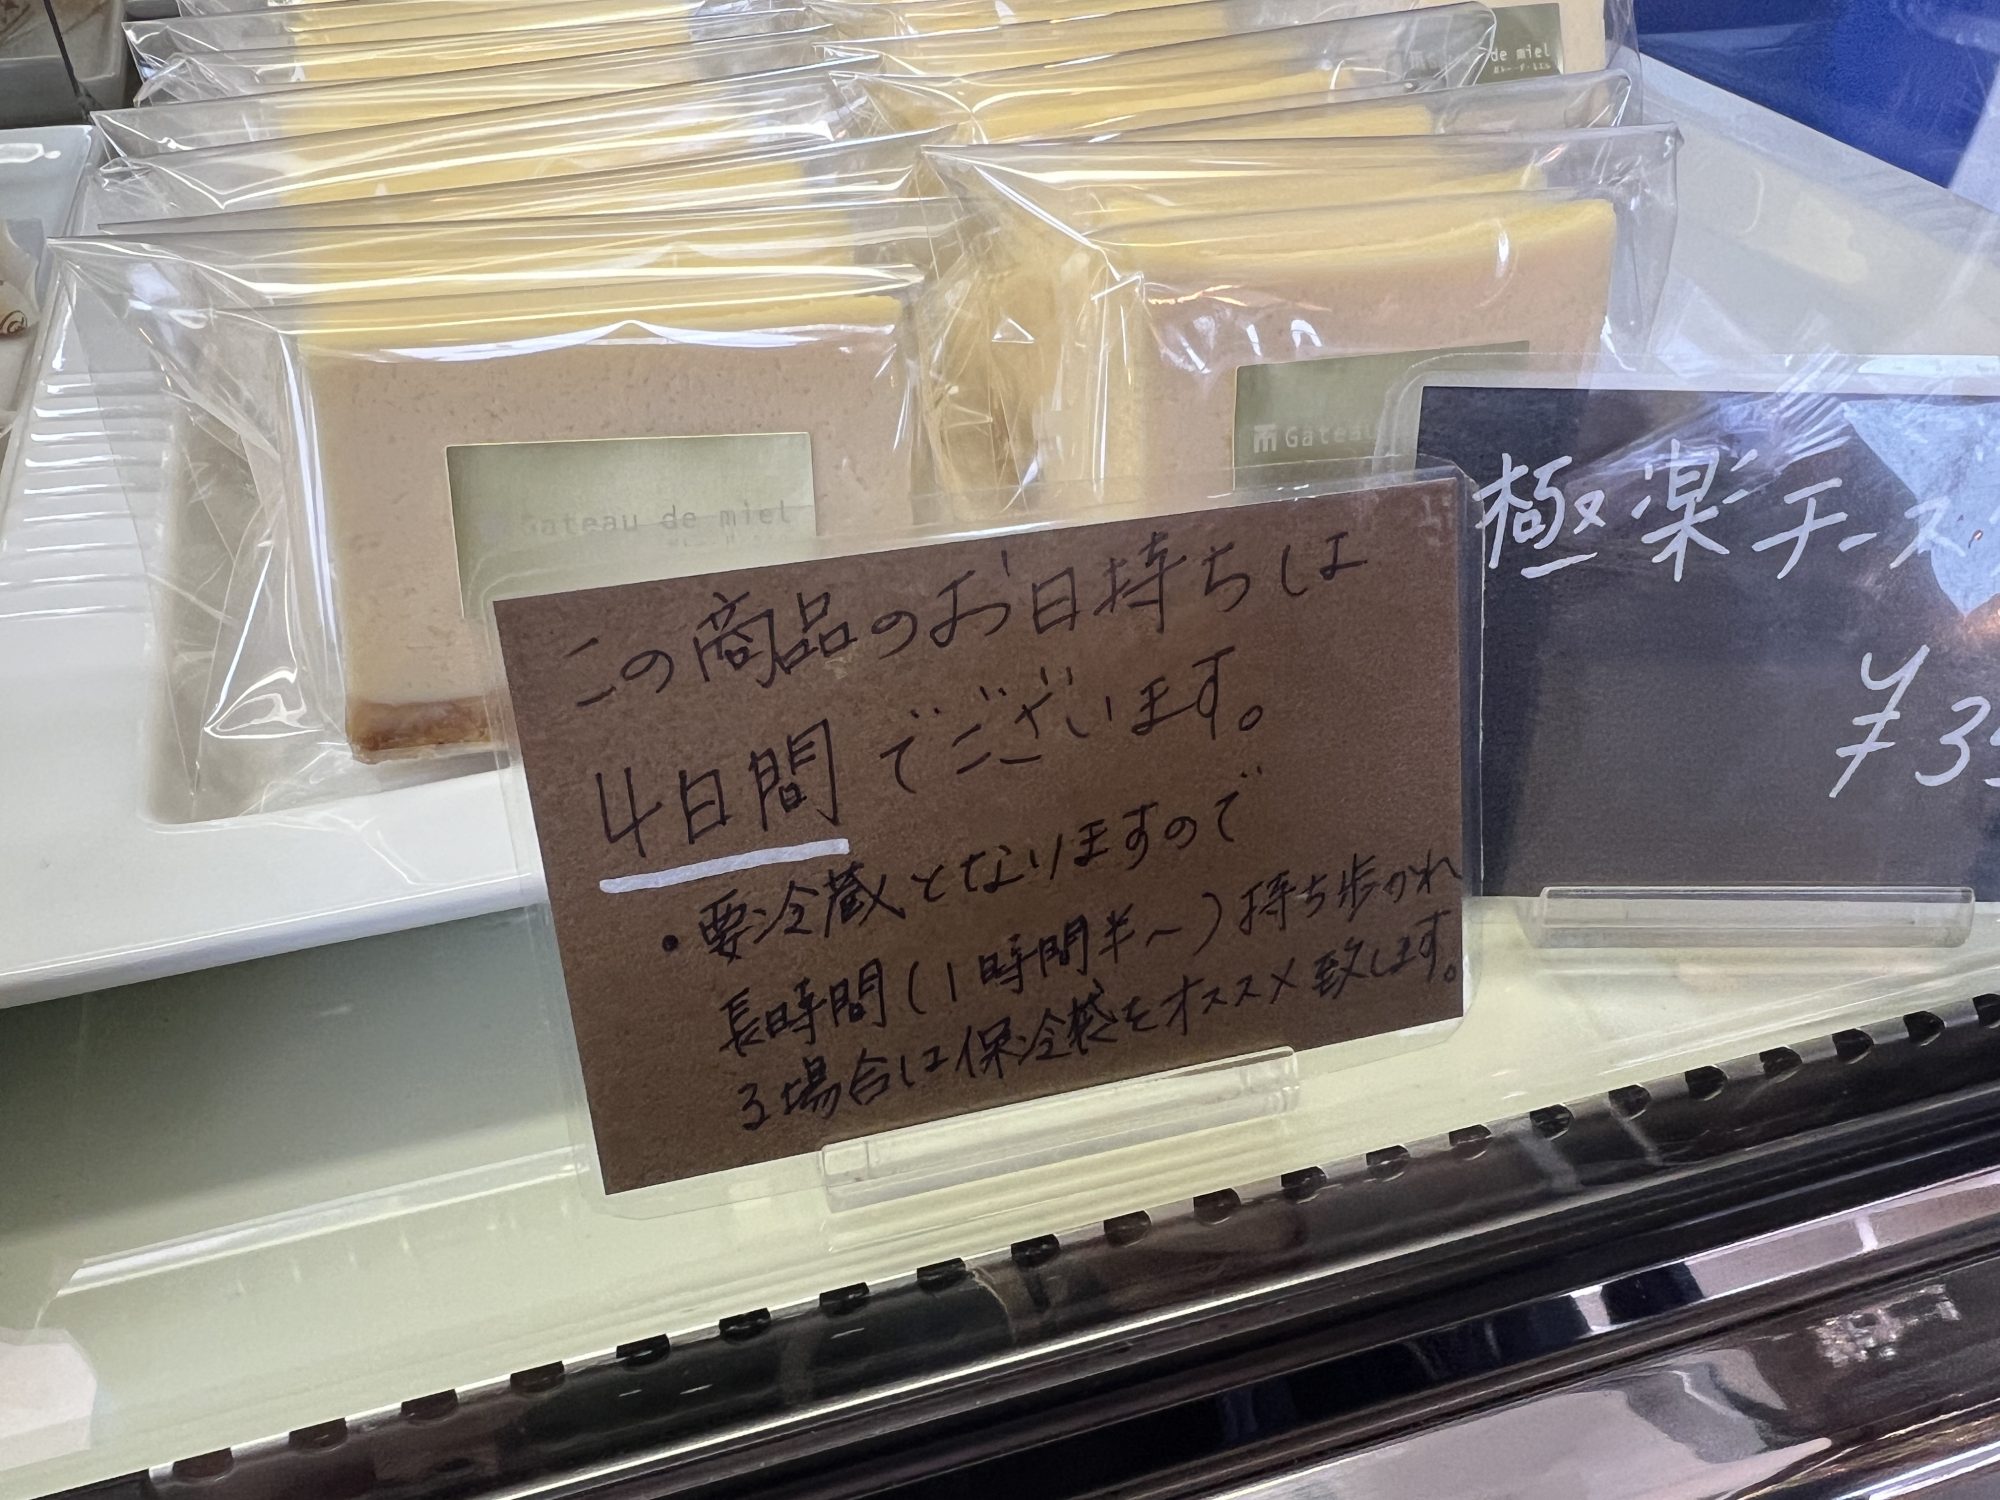 de miel
Gateau de miel
Gateau
極楽チース
¥3
この商品のお日持ちは
4日間でございます。
・要冷蔵となりますので
長時間(1時間半～)持ち歩かれ
る場合は保冷袋をオススメ致します。